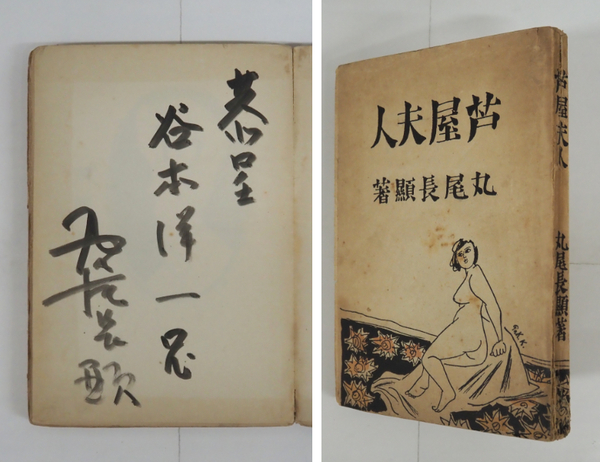 恭呈
谷本洋一兄
丸尾長顕
人夫屋芦
著顯長尾丸
芦屋夫人
丸尾長顯著